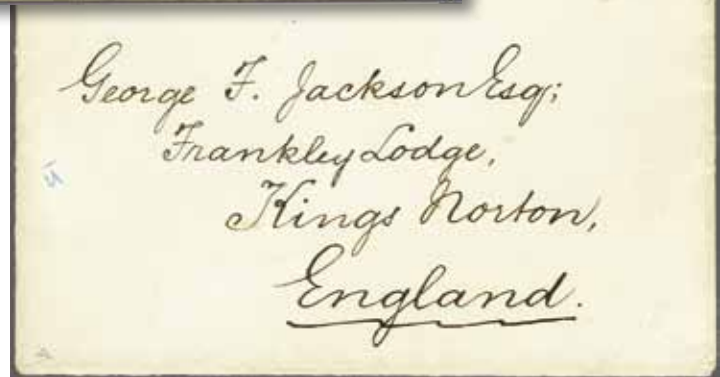 George F. Jackson Esq;
Frankley Lodge,
Kings Norton,
England.